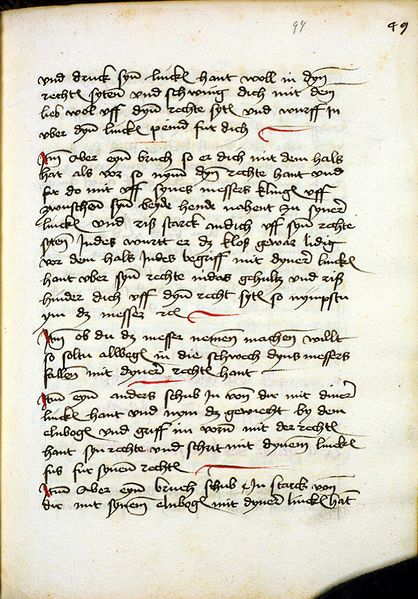 97 49
vnd druck syn linckℓ hant woll in dyn
rechtℓ sytenn vnd schwing dich mit dem
lieb wol vff dyn rechte sytℓ vnd wurff in
vber dyn linckℓ peind fur dich
Itm Aber eyn bruch so er dich mit dem hals
hat als vor so nym dyn rechte hant vnd
far do mit vff synes messers klingℓ vff
zwuschen syn beyde hende nahent zu syner
linckℓ vnd riß starck an dich vff syn rechte
syten Indes wurtt er dz kloß gewar ledig
vor dem hals Indes begriff mit dyner linckℓ
hant vber syn rechte in das gehultz vnd riß
hinder dich vff dyn recht sytℓ so nympstu
ym dz messer rcℓ
Itm ob du dz messer nemen machen willt
so soltu allwegℓ in die schwech dyns messers
fallen mit dyner rechtℓ hant
Itm eyn anders schub In von dir mit diner
linckℓ hant vnd nym dz gewicht by dem
elnbogℓ vnd griff im vorn mit der rechtℓ
hant syn rechte vnd schrit mit dynem linckℓ
fus fur synen rechtℓ
Itm Aber eyn bruch schub In starck von
dir mit synem elnbogℓ mit dyner linckℓ hant